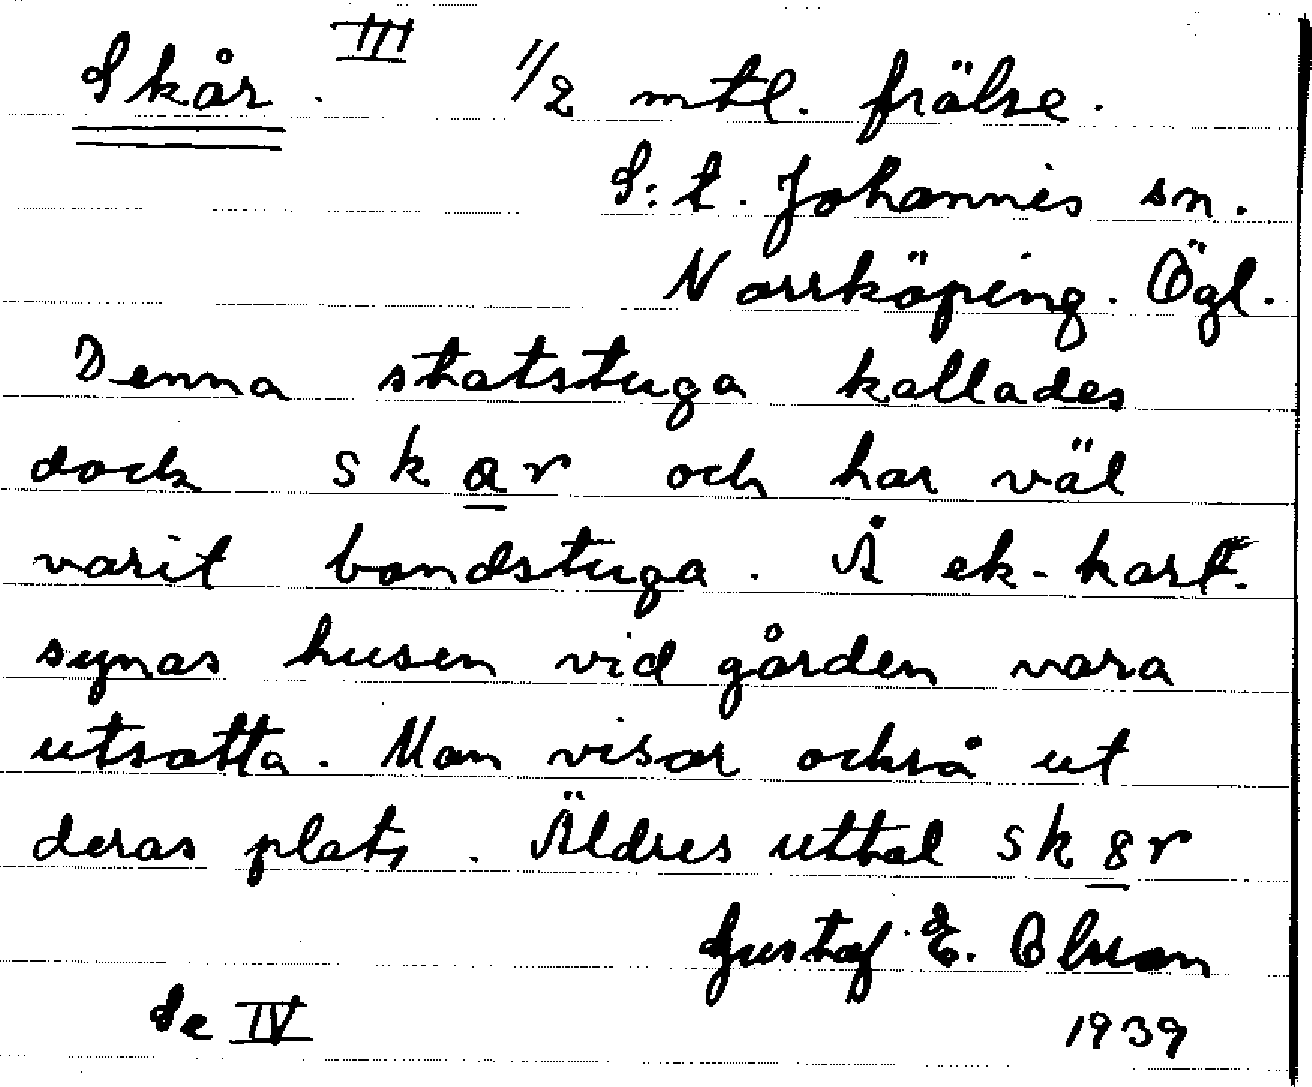 Skår. III 1/2 mtl. frälse.
S:t. Johannis sn.
Norrköping. Ögl.
Denna statstuga kallades
dock skạr och har väl
varit bondstuga. Å ek-kart.
synas husen vid gården vara
utsatta. Man visar också ut
deras plats. Äldres uttal
Gustaf E. Olsson
Se IV 1939